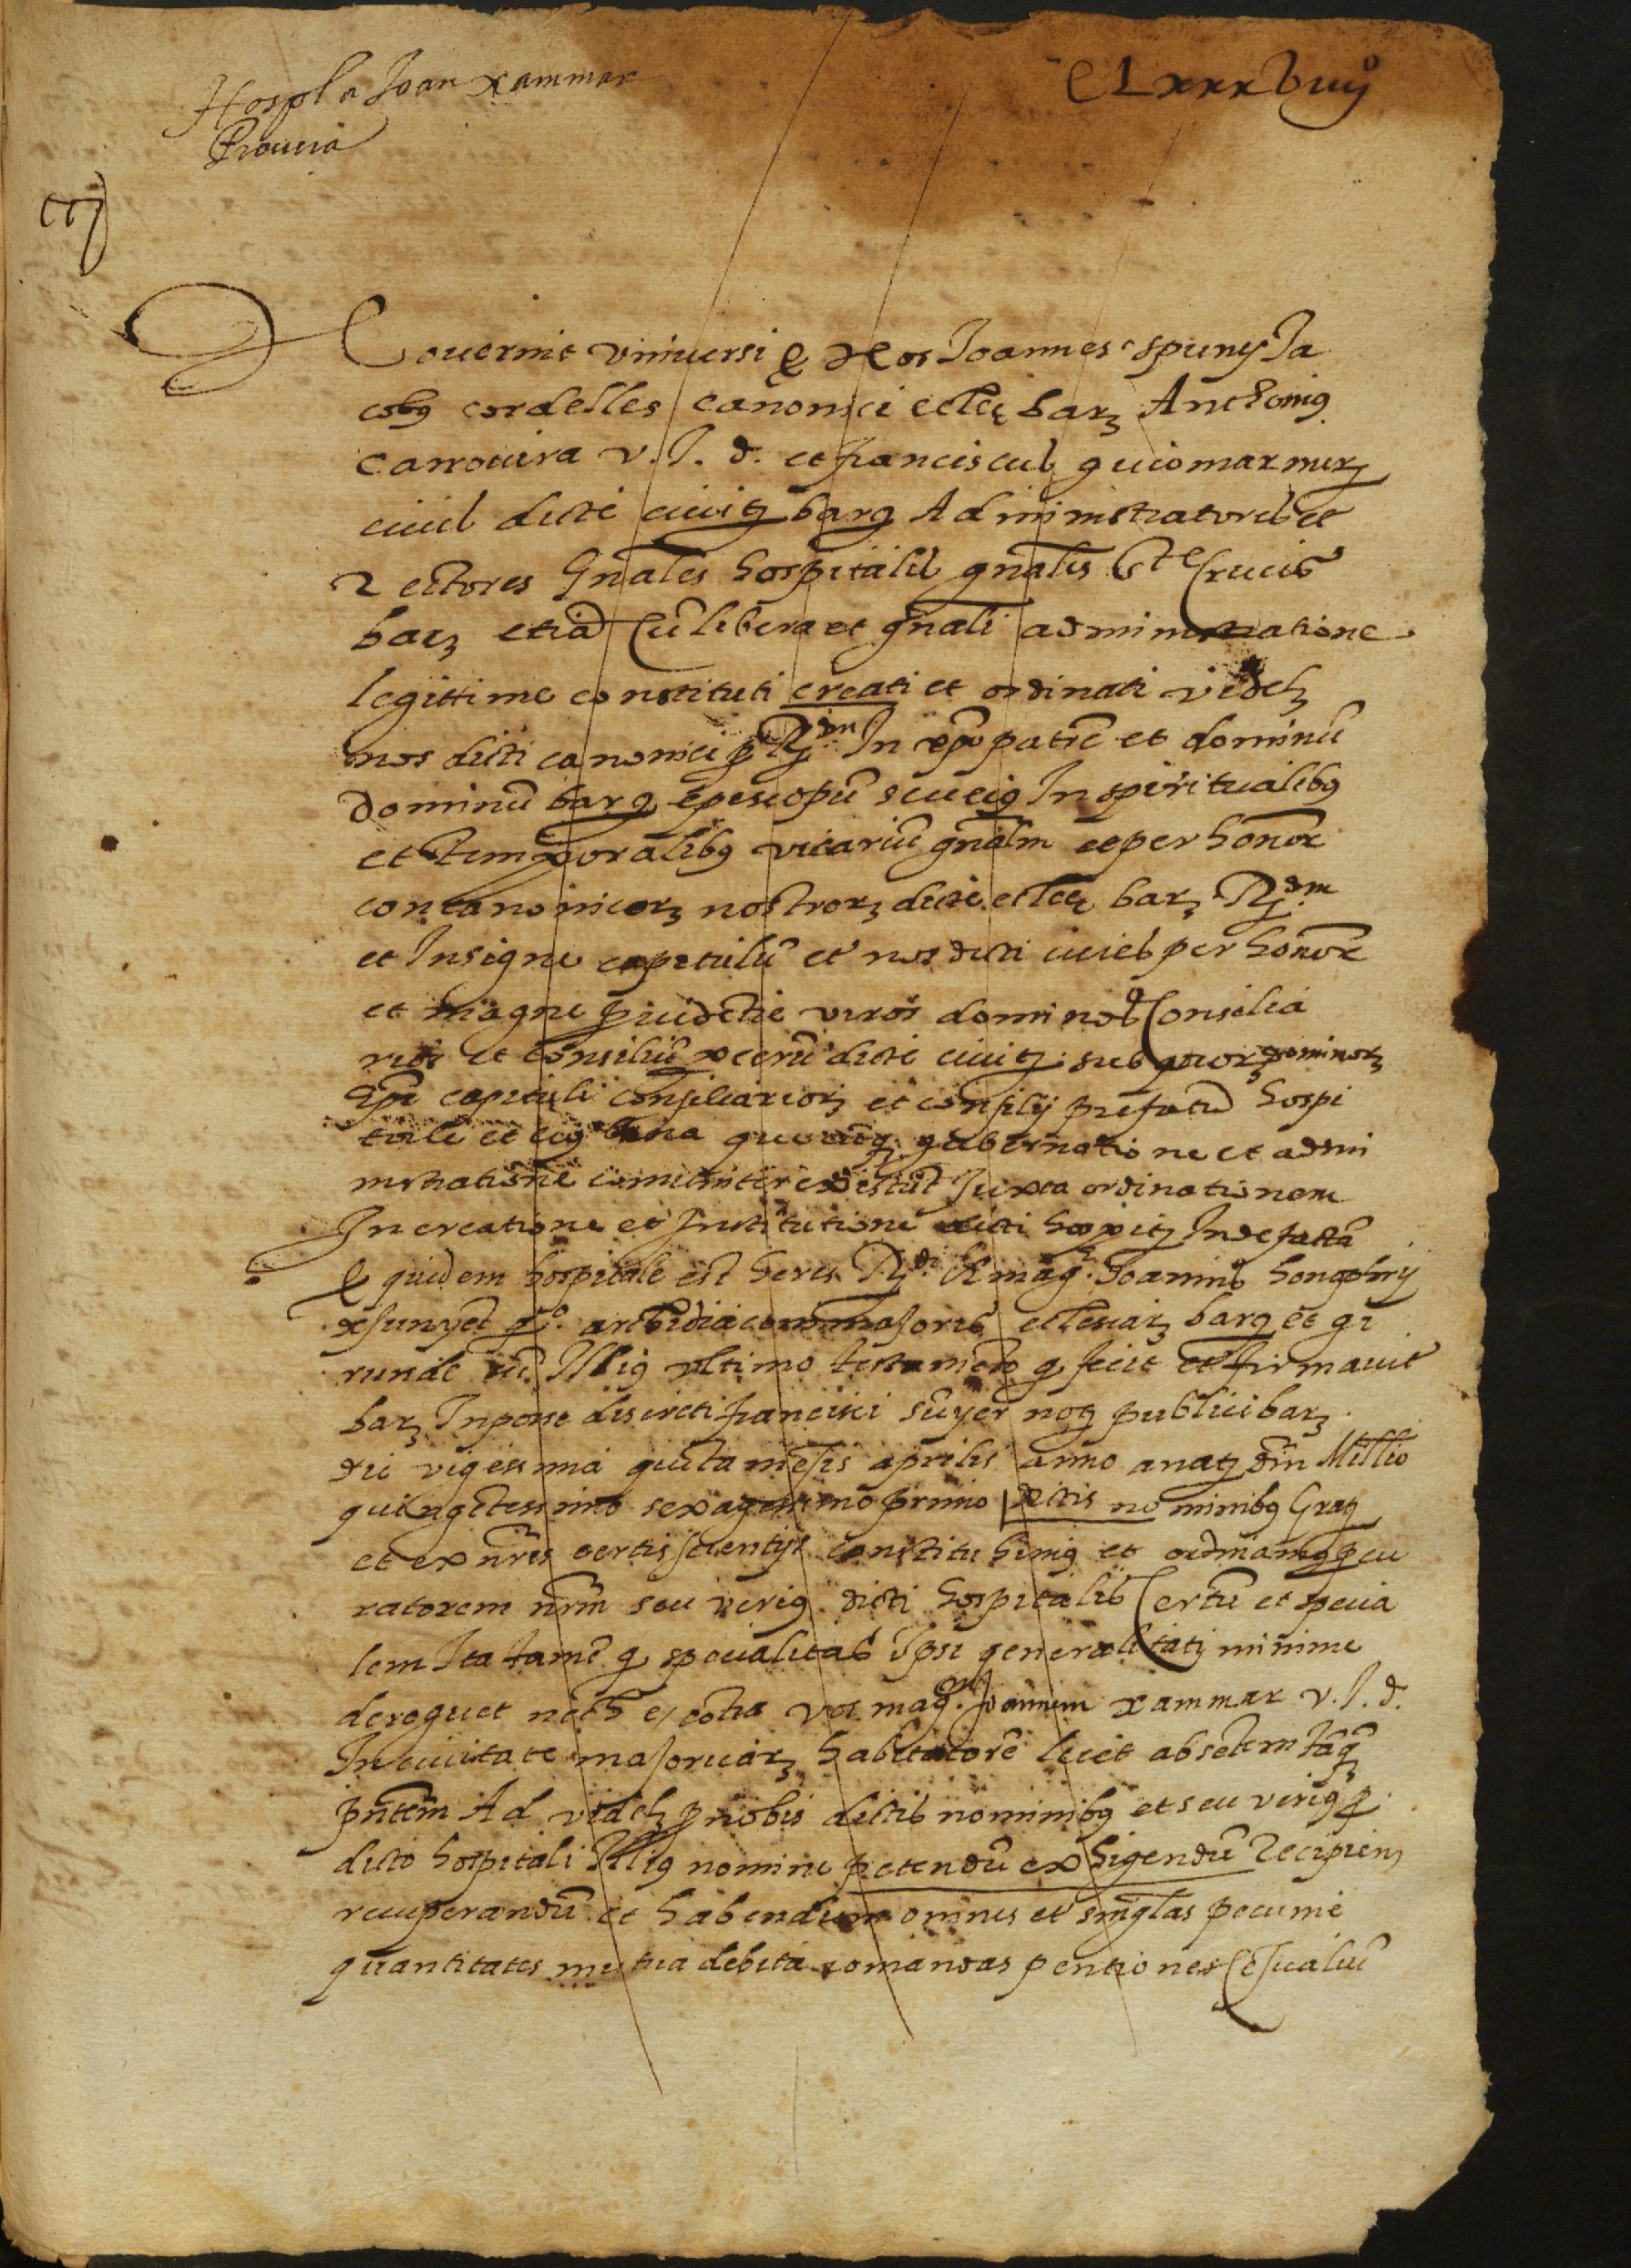 Hospl a Joan xammar
Procura
CLxxxviiijº
Noverint universi q Nos Joannes spuny Ja
cobus cordelles canonici eccle barz Anthonius
carrovira v. J. d. et franciscus guiomar merz
cives dicte civitz barq Administratores et
Rectores Gnales hospitalis gnalis Ste Crucis
barz etiã Cũ libera et gnali administratione
legittime constituti creati et ordinati videlz
nos dicti canonici p Rdm In xpo patrẽ et dominũ
dominũ barq episcopũ seu eius In spiritualibus
et temporalibus vicariũ gnalm et per honor
concanonicorz nostrorz dicte eccle barz Rdm
et Insigne capitulũ et nos dicti cives per honor
et magne prudẽtie viros dominos Consilia
rios et consiliũ centũ dicte civitz sub quorz dominorz
Epi capituli consiliariorz et consilij prefatũ hospi
tale et eius bona gubernatione et admi
nistratione existũt Juxta ordinationem
In creatione et Institutione dicti hospitz Inde factã
q quidem hospitale est heres Rdi et mag. Joannis honophrij
qº archidiaconi majoris ecclesiarz barq et gi
runde cũ Illius ultimo testamẽto q fecit et firmavit
barz In posse discreti francisci sunyer notz publici barz
die vigessima quĩta mẽsis aprilis anno a natz dñi Millio
quingẽtessimo sexagessimo primo dictis nominibus Gratz
et ex nris certis scientijs constituhimus et ordinamus procu
ratorem nrm seu verius dicti hospitalis Certũ et specia
lem Ita tamẽ q specialitas Ipsi generalitati minime
deroguet nec e contra vos mag. Joannem xammar v. J. d.
In civitate majoricarz habitatorẽ licet absẽtem tãq
pñtem Ad videlz p nobis dictis nominibus et seu verius p
dicto hospitali Illius nomine petendũ exhigendũ Recipienz
recuperandũ et habendum omnes et singlas pecunie
quantitates mutua debita comandas pentiones Cẽsualiũ